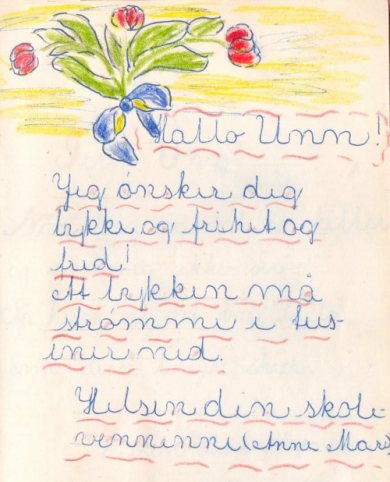 Hallo Unn!
Jeg ønsker deg
lykke og frihet og
fred!
At lykken må
strømme i tus-
iner ned.
Hilsen din skole-
venninne (Anne Mari